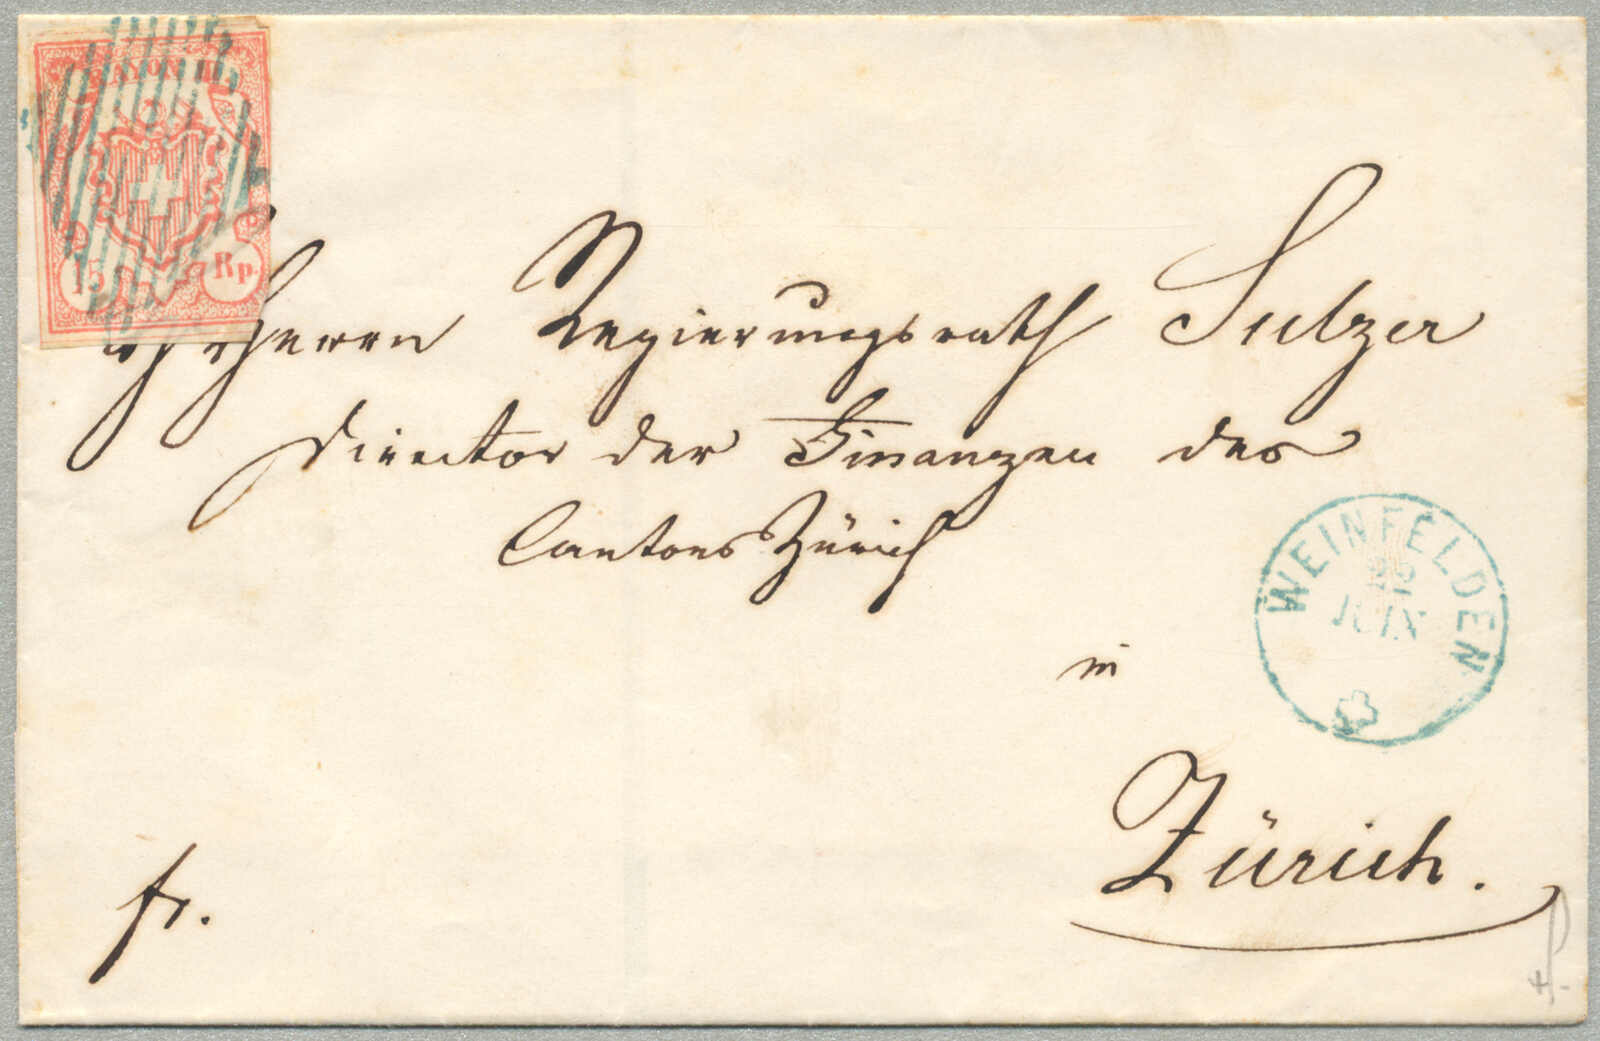 RAYON III
15 Rp.
Herrn Regierungsrath Sulzer
Director der Finanzen des
Cantons Zürich
in
Zürich.
fr.
WEINFELDEN
22
JUIN